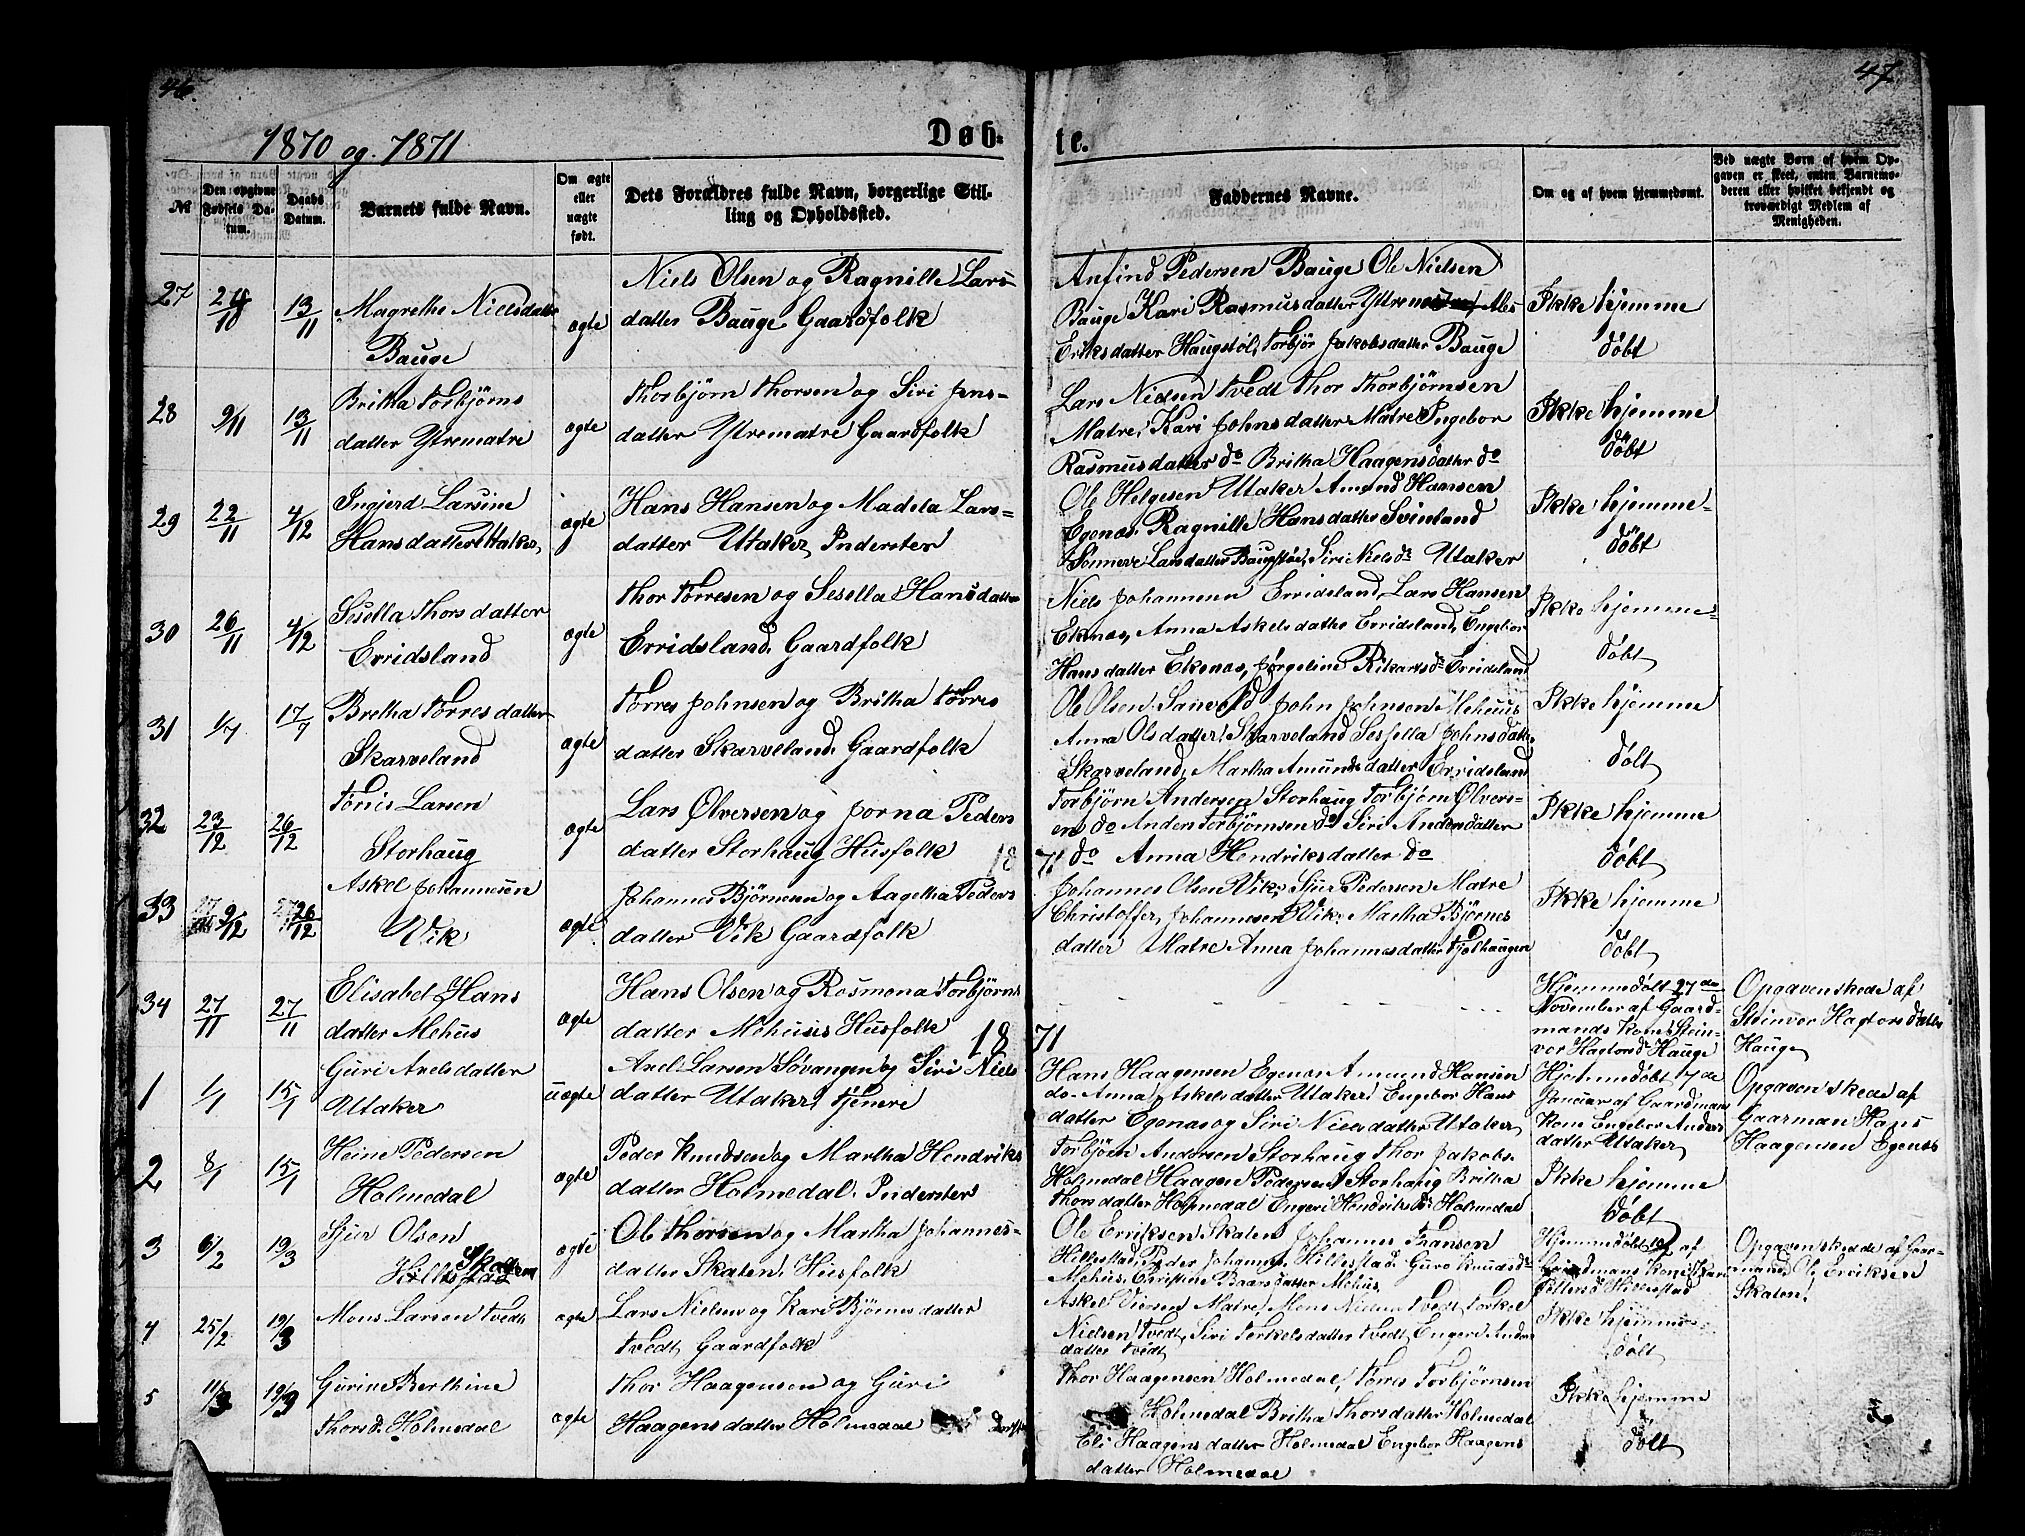 46.
47
1870 og 1871
Døb-
te.
No
Den opgivne Fødsels Datum.
Daabs Datum.
Barnets fulde Navn.
Om ægte eller uægte født.
Dets Forældres fulde Navn, borgerlige Stilling og Opholdssted.
Faddernes Navne.
Om og af hvem hjemmedøbt.
Ved uægte Børn af hvem Opgaven er skeet, enten Barnemoderen eller hvilket bekjendt og troværdigt Medlem af Menigheden.
27
/10
13/11
Magrethe Nielsdatter
Bauge
ægte
Niels Olsen og Ragnille Lars-
datter Bauge Gaardfolk
Anfind Pedersen Bauge Ole Nielsen
Bauge Kari Rasmusdatter Ytre
Eriksdatter Haugstøl, Torbjør Jakobsdatter Bauge
Ikke hjemme
døbt
28
9/11
13/11
Britha Torbjørns
datter Ytrematre
ægte
Thorbjørn Thorsen og Siri Jens-
datter Ytrematre Gaardfolk
Lars Nielsen Tvedt Thor Thorbjørnsen
Matre, Kari Johnsdatter Matre Ingebor
Rasmusdatter do Britha Haagensdatter do
Ikke hjemme
døbt
29
22/11
4/12
Ingjerd Larsine
Hansdatter Utaker
ægte
Hans Hansen og Madela Lars-
datter Utaker, Inderster
Ole Helgesen Utaker Amund Hansen
Egenæs, Ragnille Hansdatter Svinland
Sønneve Larsdatter Siri Nielsdr Utaker
Ikke hjemme-
døbt
30
26/11
4/12
Sisella Thorsdatter
Erridsland
ægte
Thor Torresen og Sesella Hansdatter
Erridsland, Gaardfolk
Niels Johannesen Erridsland, Lars Hansen
Ekenæs, Anna Askelsdatter Erridsland, Engebor
Hansdatter Ekenæs, Jørgeline Rikartsdr Erridsland
Ikke hjemme-
døbt
31
1/7
17/7
Bretha Torresdatter
Skarveland
ægte
Torres Johnsen og Britha Torres
datter Skarveland, Gaardfolk
Ole Olsen Sanvold John Johnsen Mehuus
Anna Olsdatter Skarveland Sessella Johnsdatter
Skarveland, Martha Amundsdatter Erridsland
Ikke hjemme
døbt
32
23/12
26/12
Tønis Larsen
Storhaug
ægte
Lars Ølversen og Jorna Peders
datter Storhaug Husfolk
18
71
Torbjørn Andersen Storhaug Torbjørn Ølvers-
en do Anders Torbjørnsen do Siri Andersdatter
do Anna Hendriksdatter do
Ikke hjemme
døbt
33
9/12
26/12
Askel Johannesen
Vik
ægte
Johannes Bjørnsen og Aagetha Peders
datter Vik Gaardfolk
Johannes Olsen Vik, Sjur Pedersen Matre
Christoffer Johannesen Vik, Martha Bjørnes
datter Matre Anna Johannesdatter Fjelhaugen
Ikke hjemme
døbt
34
27/11
27/11
Elisabet Hans
datter Mehus
ægte
Hans Olsen og Rosmona Torbjørns
datter Mehuus Husfolk
18
71
Hjemmedøbt 27de
November af Gaard-
mands Kone Stein-
vor Hagtorsdr Hauge
Opgaven skede af
Steinvor Hagtorsdatter
Hauge
1
1/1
15/1
Guri Axelsdatter
Utaker
uægte
Axel Larsen Søvangen og Siri Niels
datter Utaker, tjenere
Hans Haagensen Egenæs Amund Hansen
do Anna Askelsdatter Utaker, Engebor Hans
datter Egenæs og Siri Nielsdatter Utaker
Hjemmedøbt de
Januar af Gaardmans
Kone Engebor Anders
datter Utaker
Opgaven skede af
Gaarman Hans
Haagensen Egenæs
2
8/1
15/1
Heine Pedersen
Holmedal
ægte
Peder Knudsen og Martha Hendriks
datter Holmedal, Inderster
Torbjørn Andersen Storhaug Thor Jakobs.
Holmedal Haagen Pedersen Storhaug Britha
Thorsdatter Holmedal Engeri Hendriksdr Holmedal
Ikke hjemme
døbt
3
6/2
19/3
Sjur Olsen
Skaten
ægte
Ole Thorsen og Martha Johannes-
datter Skaten, Husfolk
Ole Erriksen Skaten Johannes Fransen
Hillestad, Peder Johannes. Hillestad, Guro Knudsdr
Mehus, Christine Baarsdatter Mehus
Hjemmedøbt af
Gaardmans Kone Kari
Opgaven skede af Gaar-
mand Ole Erriksen
Skaten.
4
25/2
19/3
Mons Larsen Tvedt
ægte
Lars Nielsen og Kari Bjørnesdatter
Tvedt Gaardfolk
Askel Viersen Matre, Mons Nielsen Tvedt, Torkel
Nielsen Tvedt, Siri Terkelsdatter Tvedt, Engeri Anders
datter Tvedt
Ikke hjemme
døbt
5
11/3
19/3
Gurine Berthine
Thorsdr Holmedal
ægte
Thor Haagensen og Guri
Haagensdatter Holmedal
Thor Haagensen Holmedal, Torres Torbjørnsen
Holmedal Britha Thorsdatter Holmedal
Eli Haagensdatter Holmedal Engebor Haagens
datter Holmedal
Ikke hjemme
døbt